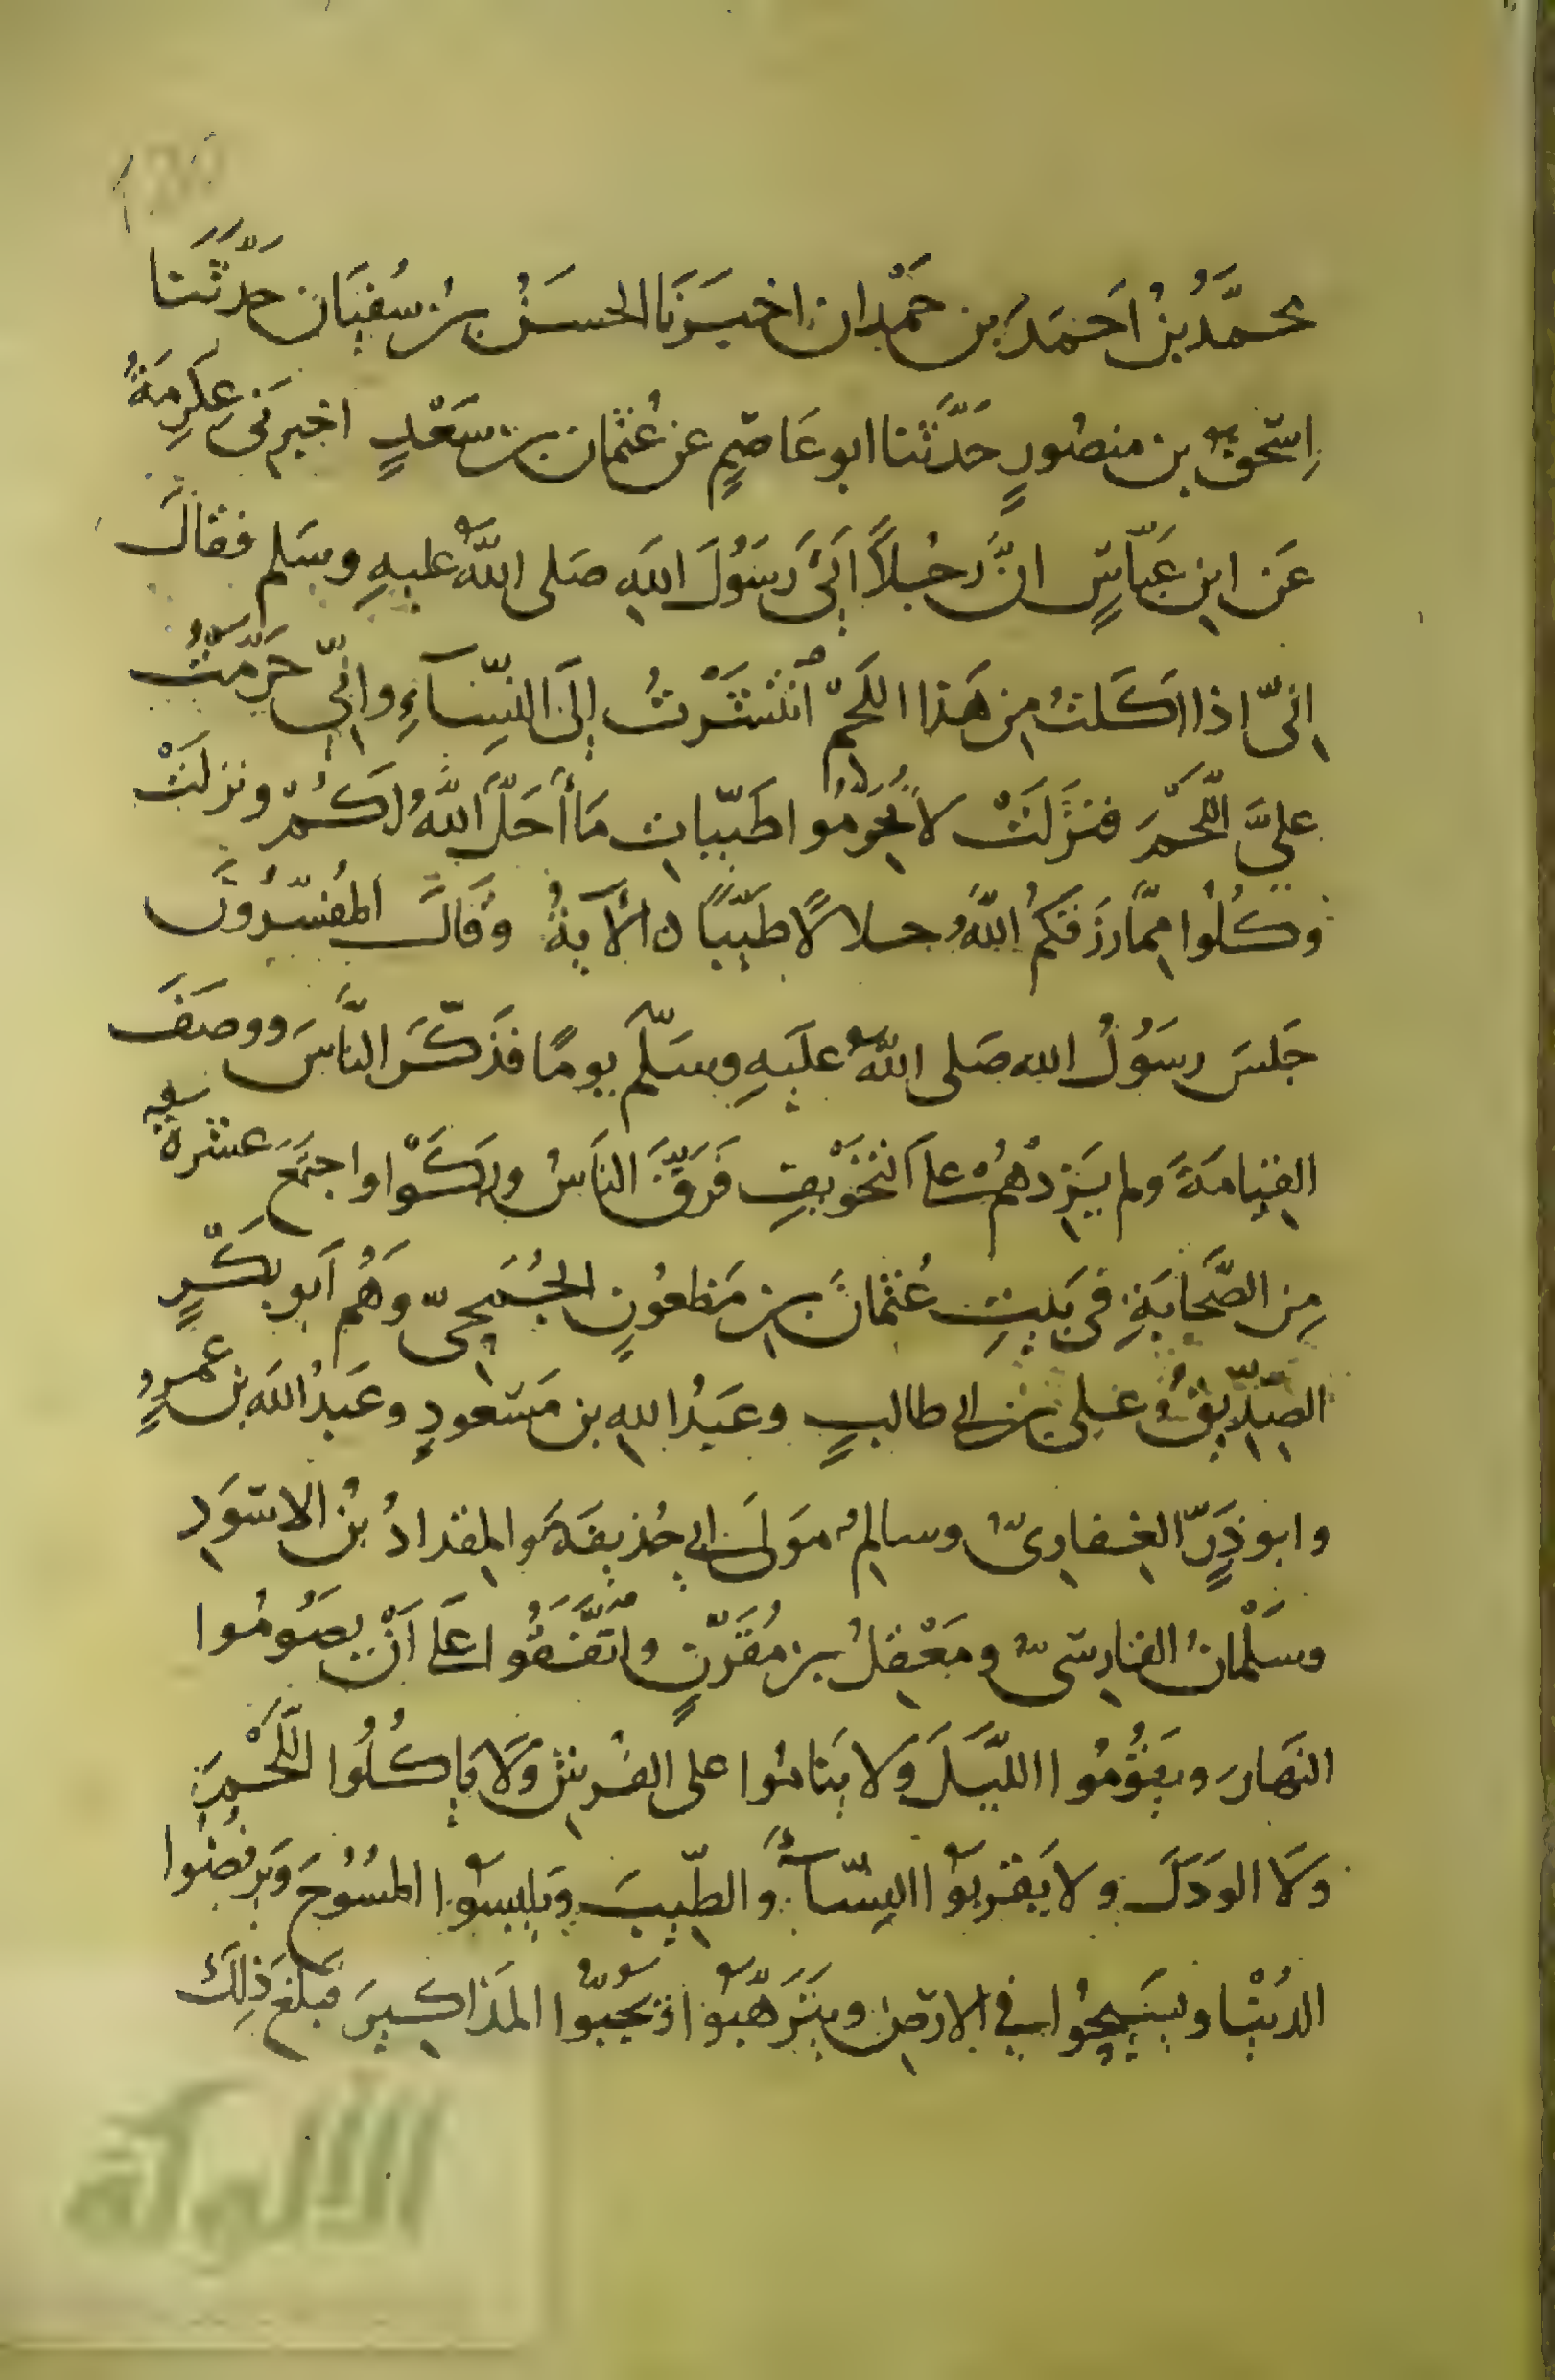 محمَّدُ بنُ اَحمَدَ بن حَمْدان اخبَرَنَا الحسَنُ بنُ سُفيَان حَدَّثَنا
اِسحٰقُ بن منصُورٍ حَدَّثَنا ابو عَاصِمٍ عن عُثمان بن سَعْدٍ اخبرَنى عِكرِمَةُ
عَن ابن عَبّاسٍ انَّ رَجُلاً اَتَى رَسُولَ اللهِ صَلى اللهُ عليهِ وسَلم فقالَ
اِنىّ اذا اكَلتُ مِن هَذا اللَحْمِ اَنتشَرْتُ إلَى النِّسَآءِ وانِّى حَرَّمْتُ
علىَّ اللَّحْمَ فنزَلَتْ لا تُحَرِّمُوا طَيّبَاتِ مَا أحَلَّ اللهُ لَكُمْ ونزلَتْ
وَكُلُوا مِمَّا رَزَقكُمُ اللهُ حلالاً طَيّبًا الآيةُ وَقالَ المُفسّرُونَ
جَلسَ رسَوُلُ الله صَلى اللهُ علَيهِ وسَلّم يومًا فذَكَّرَ النَّاسَ ووصَفَ
القِيامَةَ ولم يَزِدْهُمْ على التخَوْيفِ فَرَقَّ النَاسُ وبَكَوْا واجتمَعَ عشرةٌ
مِن الصَّحابَةِ فى بَيتِ عُثمانَ بنِ مَظعُونٍ الجُمَحِىّ وَهُم اَبو بَكْرٍ
الصِّدّيقُ وعَلى بن ابى طالبٍ وعَبدُ اللهِ بن مَسْعودٍ وعَبدُ اللهِ بن عمروٍ
وابو ذَرٍّ الغِفارىّ وسالِمٌ مَولَى ابى حُذيفَةَ والمِقدادُ بنُ الاسْوَدِ
وسَلْمانُ الفارِسىّ ومَعْقِلُ بن مُقَرّنٍ واتَّفَقُوا عَلى اَنْ يصَوُمُوا
النهَارَ ويَقوُمُوا اللّيَلَ وَلا يَنامُوا على الفُرشِ وَلَا يَاكُلُوا اللَّحْمَ
وَلَا الوَدَكَ ولا يَقرَبوُا النِسّآءَ والطِّيبَ ويَلبِسَوُا المسُوُحَ وَيَرفُضُوا
الدُنْيا ويَسِيحُوا فى الارْضِ ويَتَرَهَّبَوُا ويَجُبّوُا المَذاكِيرَ فبلغَ ذلِكَ